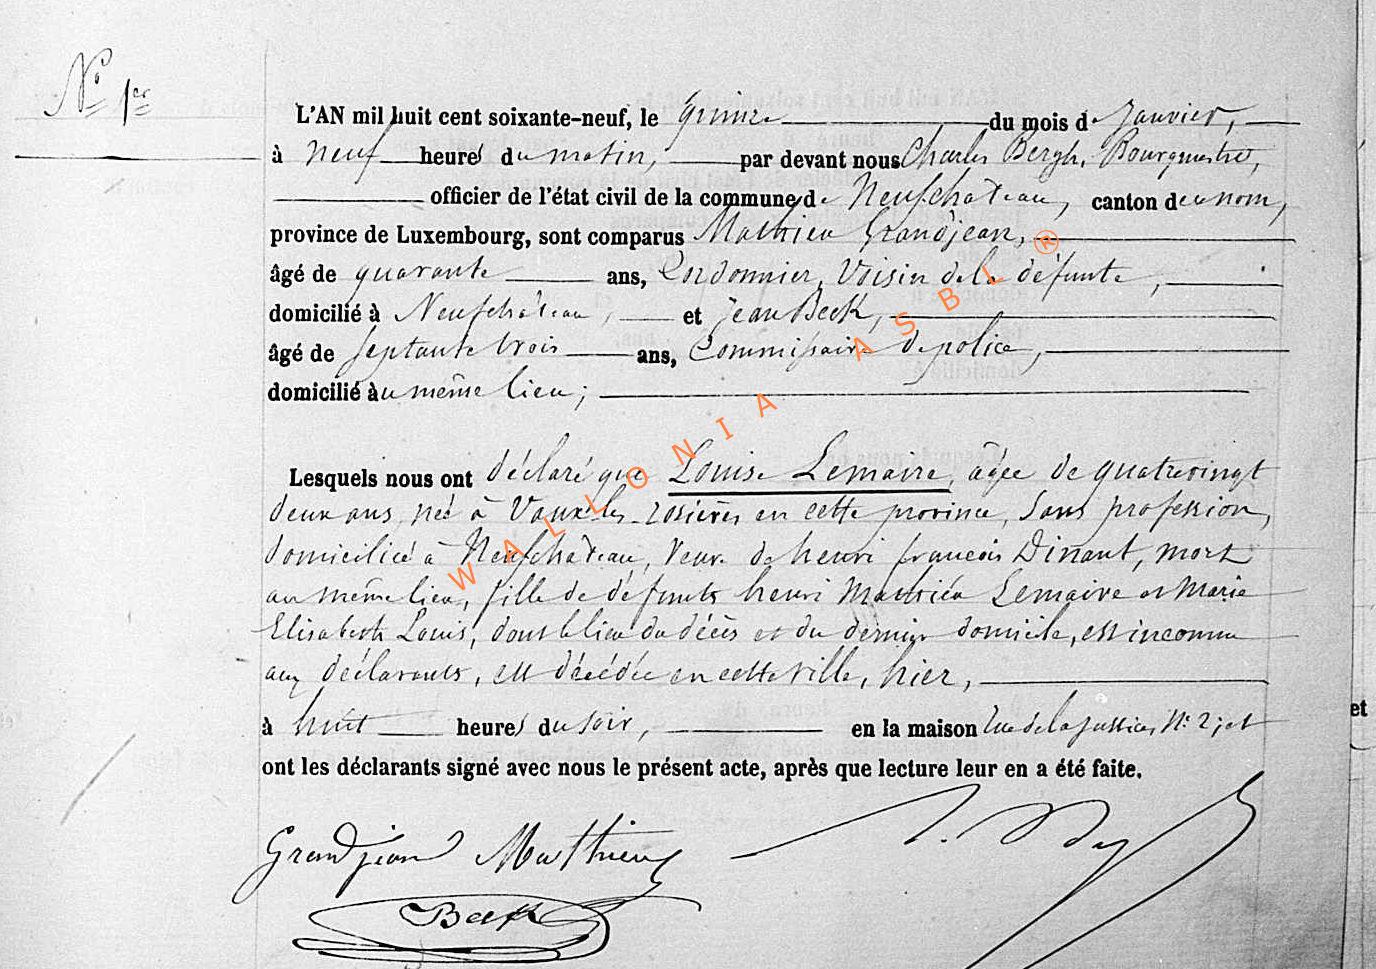 N° 1er
L'AN mil huit cent soixante-neuf, le quinze du mois de Janvier,
à neuf heures du matin, par devant nous Charles Bergh, Bourgmestre,
officier de l'état civil de la commune de Neufchateau, canton de ce nom,
province de Luxembourg, sont comparus Mathieu Grandjean,
âgé de quarante ans, Cordonnier, Voisin de la défunte,
domicilié à Neufchâteau, et Jean Beck,
âgé de septante trois ans, Commissaire de police,
domicilié au même lieu;
Lesquels nous ont déclaré que Louise Lemaire, âgée de quatrevingt
deux ans, née à Vaux les rosières en cette province, Sans profession,
domiciliée à Neufchateau, Veuve de henri francois Dinant, mort
au même lieu, fille de défunts henri Mathieu Lemaire et Marie
Elisabeth Louis, dont le lieu du décès et du dernier domicile, est inconnu
aux déclarants, est décédée en cette ville, hier,
à huit heures du soir, en la maison rue de la justice, N° 2; et
ont les déclarants signé avec nous le présent acte, après que lecture leur en a été faite.
Grandjean Mathieu
Beck
WALLONIA ASBL ®
et